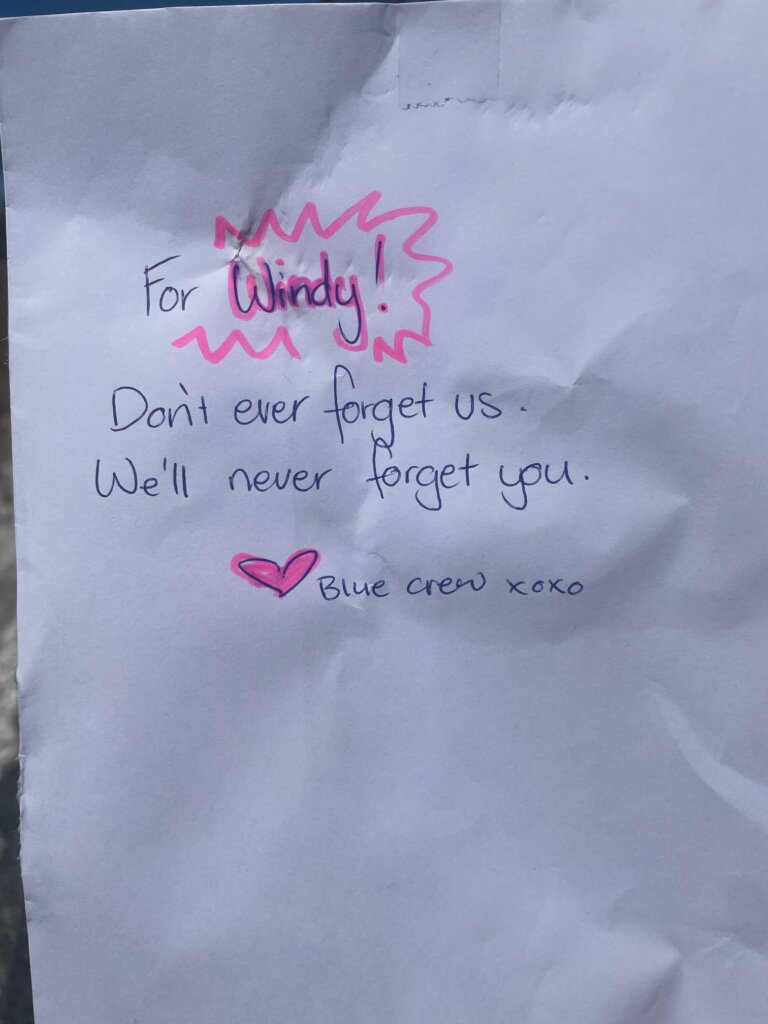 For Windy!
Don't ever forget us.
We'll never forget you.
Blue crew xoxo